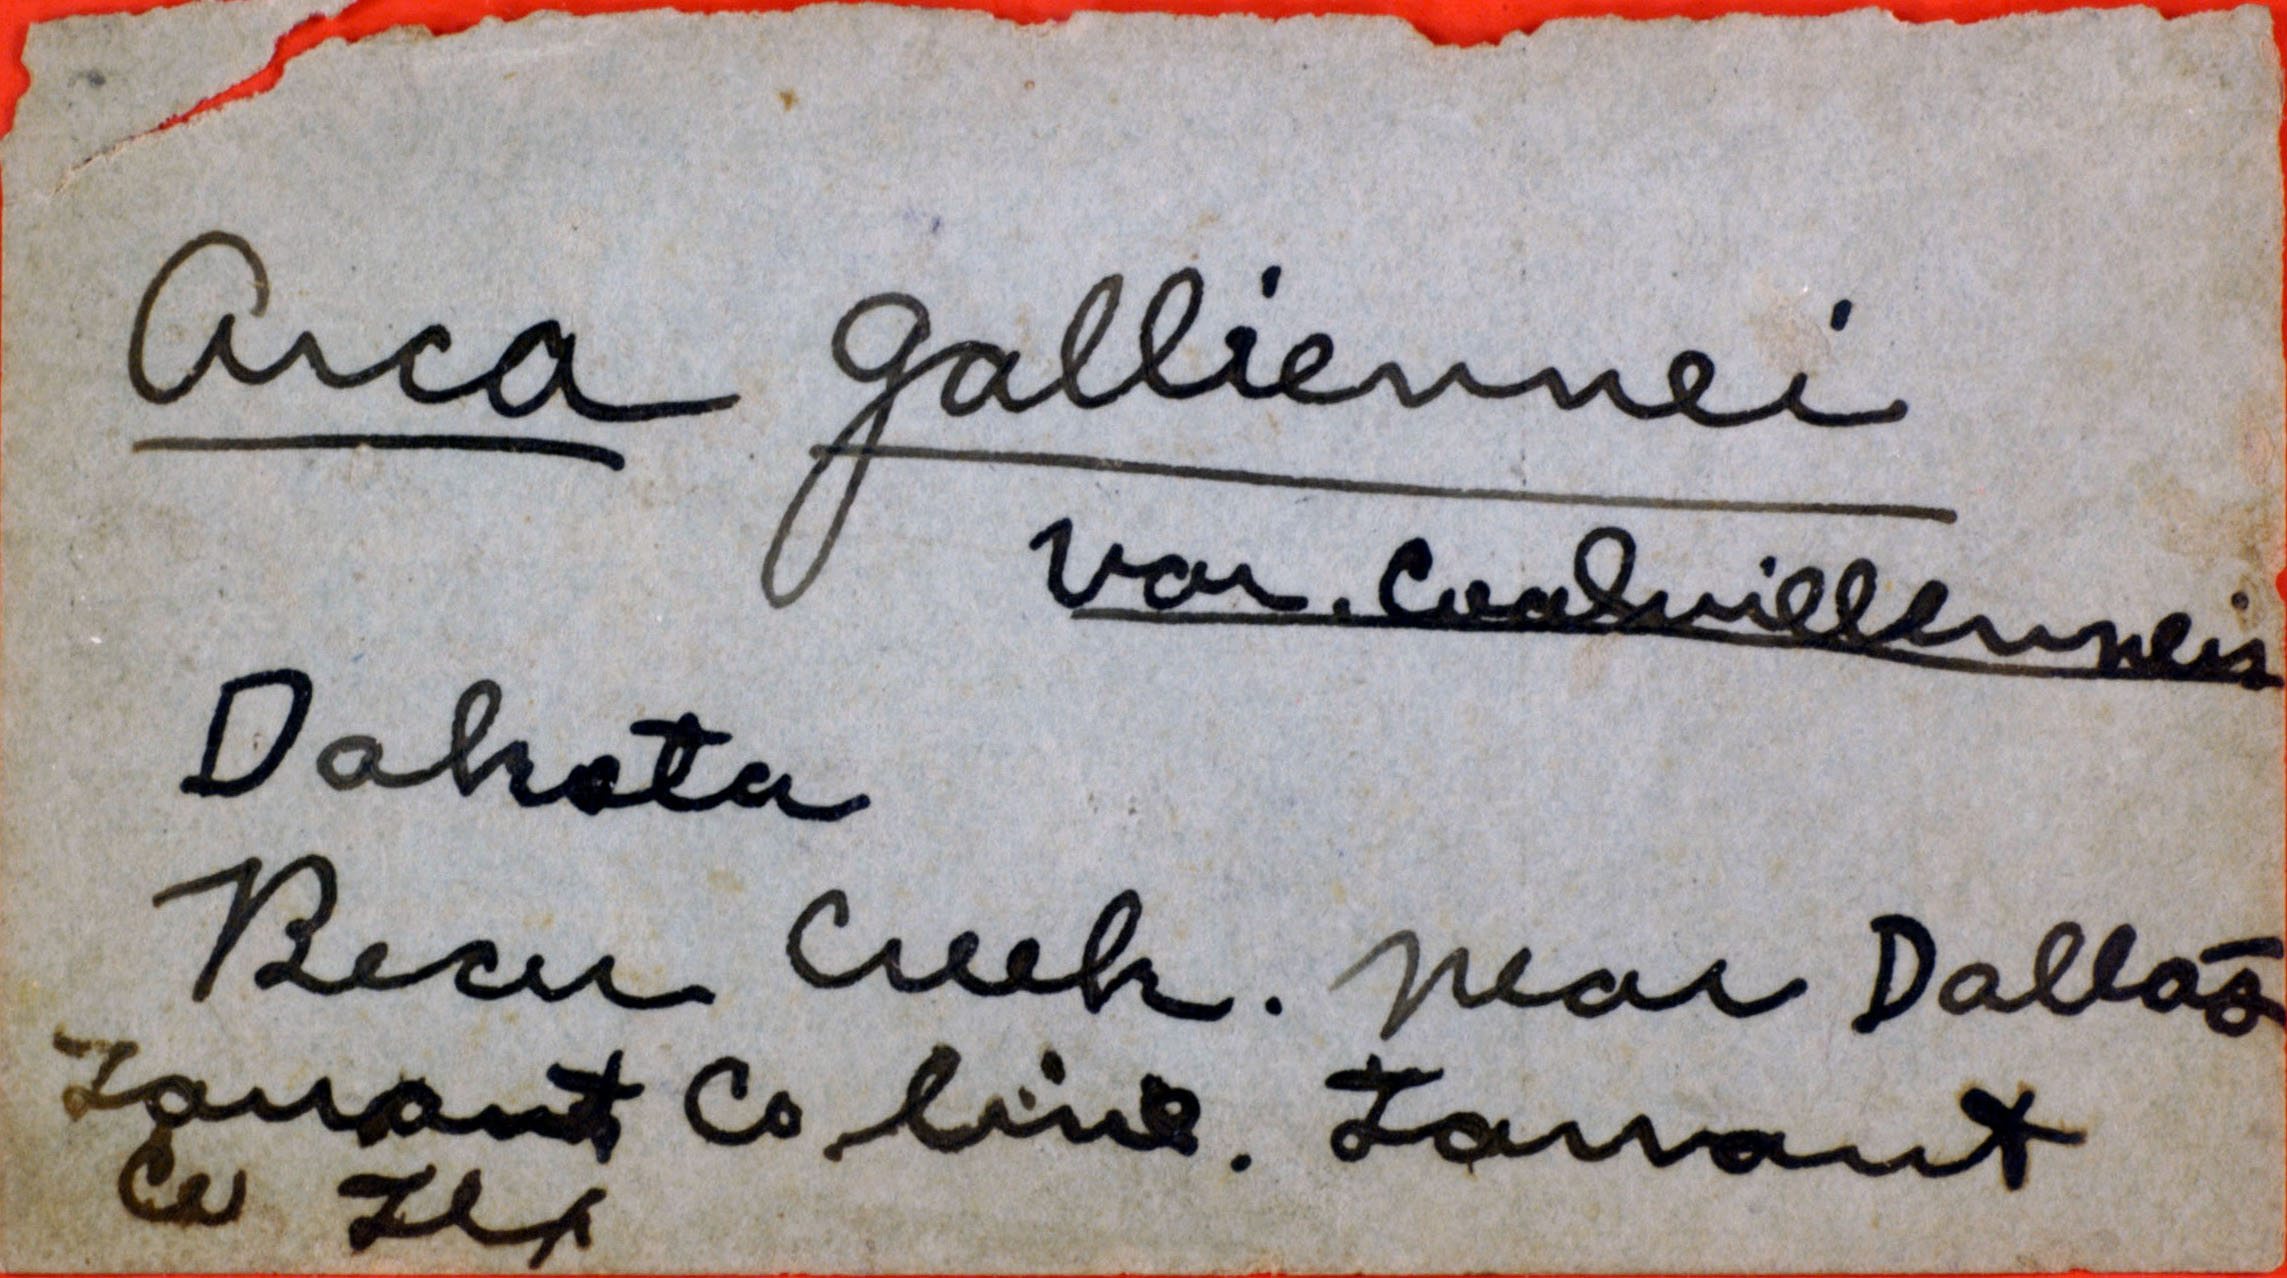 Arca galliennei
var. Coalvillensis
Dakota
Bear Creek. near Dallas
Tarrant Co line. Tarrant
Co Tex